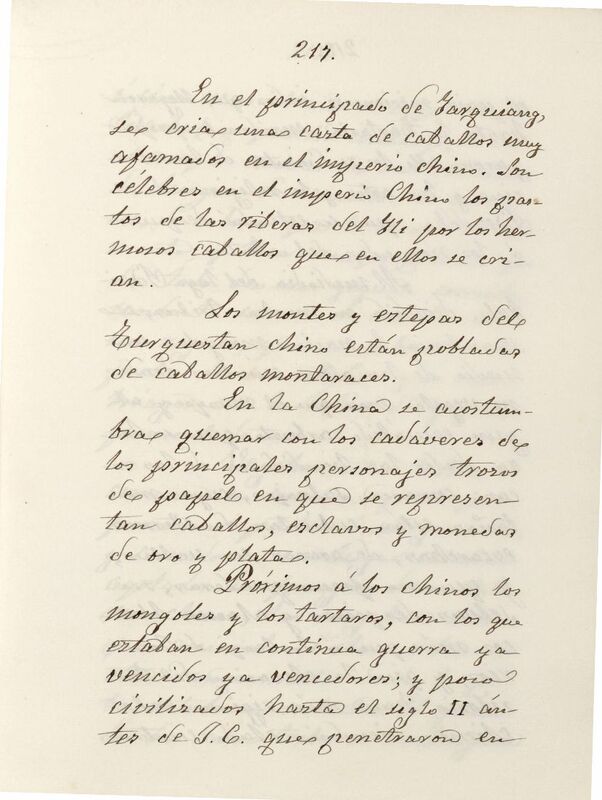 217.
En el principado de Tarquiang,
se cria una casta de caballos muy
afamados en el imperio chino. Son
célebres en el imperio Chino los pas-
tos de las riberas del Ili por los her-
mosos caballos que en ellos se cri-
an.
Los montes y estepas del
Turquestan chino están pobladas
de caballos montaraces.
En la China se acostum-
bra quemar con los cadáveres de
los principales personajes trozos
de papel en que se represen
tan caballos, esclavos y monedas
de oro y plata.
Próximos á los chinos los
mongoles y los tartaros, con los que
estaban en continua guerra ya
vencidos ya vencedores; y poco
civilizados hasta el siglo II án-
tes de J. C. que penetraron en